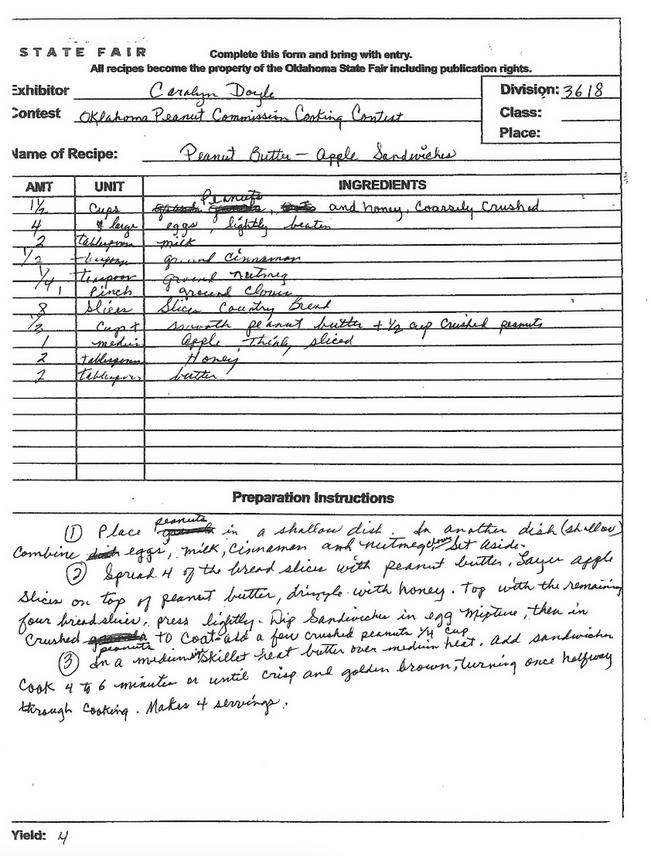 STATE FAIR
Complete this form and bring with entry.
All recipes become the property of the Oklahoma State Fair including publication rights.
Exhibitor Carolyn Doyle
Division: 3618
Contest Oklahoma Peanut Commission Cooking Contest
Class:
Place:
Name of Recipe: Peanut Butter - Apple Sandwiches
AMT UNIT INGREDIENTS
1 1/2 Cups Peanuts and honey, Coarsely Crushed
4 large eggs, lightly beaten
2 tablespoons milk
1/2 teaspoon ground cinnamon
1/4 teaspoon ground nutmeg
1 Pinch ground cloves
8 slices Slices Country Bread
1/3 Cup + smooth peanut butter + 1/2 cup Crushed peanuts
1 medium Apple Thinly sliced
2 tablespoons Honey
2 tablespoons butter
Preparation Instructions
(1) Place peanuts in a shallow dish. In another dish (shallow)
Combine eggs, milk, cinnamon and nutmeg, cloves Set Aside.
(2) Spread 4 of the bread slices with peanut butter, Layer apple
Slices on top of peanut butter, drizzle with honey. Top with the remaining
four bread slices, press lightly. Dip Sandwiches in egg Mixture, then in
Crushed peanuts to Coat add a few crushed peanuts 1/4 cup
(3) In a medium skillet heat butter over medium heat. add sandwiches
Cook 4 to 6 minutes or until crisp and golden brown, turning once halfway
through Cooking. Makes 4 servings.
Yield: 4